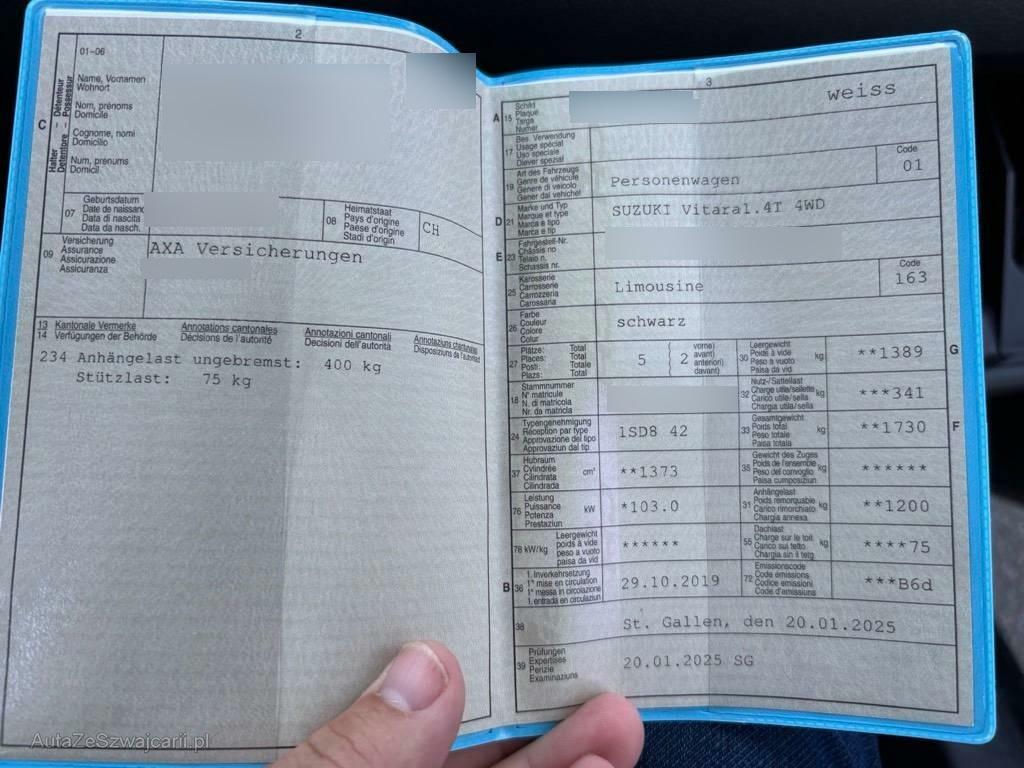 2
01-06
C
Halter - Détenteur
Detentore - Possessur
Name, Vornamen
Wohnort
Nom, prénoms
Domicile
Cognome, nomi
Domicilio
Num, prenums
Domicil
07
Geburtsdatum
Date de naissanc
Data di nascita
Data da nasch.
08
Heimatstaat
Pays d'origine
Paese d'origine
Stadi d'origin
CH
09
Versicherung
Assurance
Assicurazione
Assicuranza
AXA Versicherungen
13 Kantonale Vermerke
14 Verfügungen der Behörde
Annotations cantonales
Décisions de l'autorité
Annotazioni cantonali
Decisioni dell'autorità
Annotaziuns chantunalas
Disposiziuns da l'autoritad
234 Anhängelast ungebremst: 400 kg
Stützlast: 75 kg
3
A 15
Schild
Plaque
Targa
Numer
weiss
17
Bes. Verwendung
Usage spécial
Uso speciale
Diever spezial
19
Art des Fahrzeugs
Genre de véhicule
Genere di veicolo
Gener dal vehichel
Personenwagen
Code
01
D 21
Marke und Typ
Marque et type
Marca e tipo
Marca e tip
SUZUKI Vitara1.4T 4WD
E 23
Fahrgestell-Nr.
Châssis no
Telaio n.
Schassis nr.
25
Karosserie
Carrosserie
Carrozzeria
Carossaria
Limousine
Code
163
26
Farbe
Couleur
Colore
Colur
schwarz
27
Plätze: Total
Places: Total
Posti: Totale
Plazs: Total
5
2
vorne)
avant)
anteriori)
davant)
30
Leergewicht
Poids à vide
Peso a vuoto
Paisa da vid
kg
**1389
G
18
Stammnummer
N° matricule
N. di matricola
Nr. da matricla
32
Nutz-/Sattellast
Charge utile/sellette
Carico utile/sella
Chargia utila/sella
kg
***341
24
Typengenehmigung
Réception par type
Approvazione del tipo
Approvaziun dal tip
1SD8 42
33
Gesamtgewicht
Poids total
Peso totale
Paisa totala
kg
**1730
F
37
Hubraum
Cylindrée
Cilindrata
Cilindrada
cm³
**1373
35
Gewicht des Zuges
Poids de l'ensemble
Peso del convoglio
Paisa cumposiziun
kg
******
76
Leistung
Puissance
Potenza
Prestaziun
kW
*103.0
31
Anhängelast
Poids remorquable
Carico rimorchiato
Chargia annexa
kg
**1200
78 kW/kg
Leergewicht
poids à vide
peso a vuoto
paisa da vid
******
55
Dachlast
Charge sur le toit
Carico sul tetto
Chargia sin il tetg
kg
****75
B 36
1. Inverkehrsetzung
1re mise en circulation
1a messa in circolazione
1. entrada en circulaziun
29.10.2019
72
Emissionscode
Code émissions
Codice emissioni
Code d'emissiuns
***B6d
38
St. Gallen, den 20.01.2025
39
Prüfungen
Expertises
Perizie
Examinaziuns
20.01.2025 SG
AutaZeSzwajcarii.pl